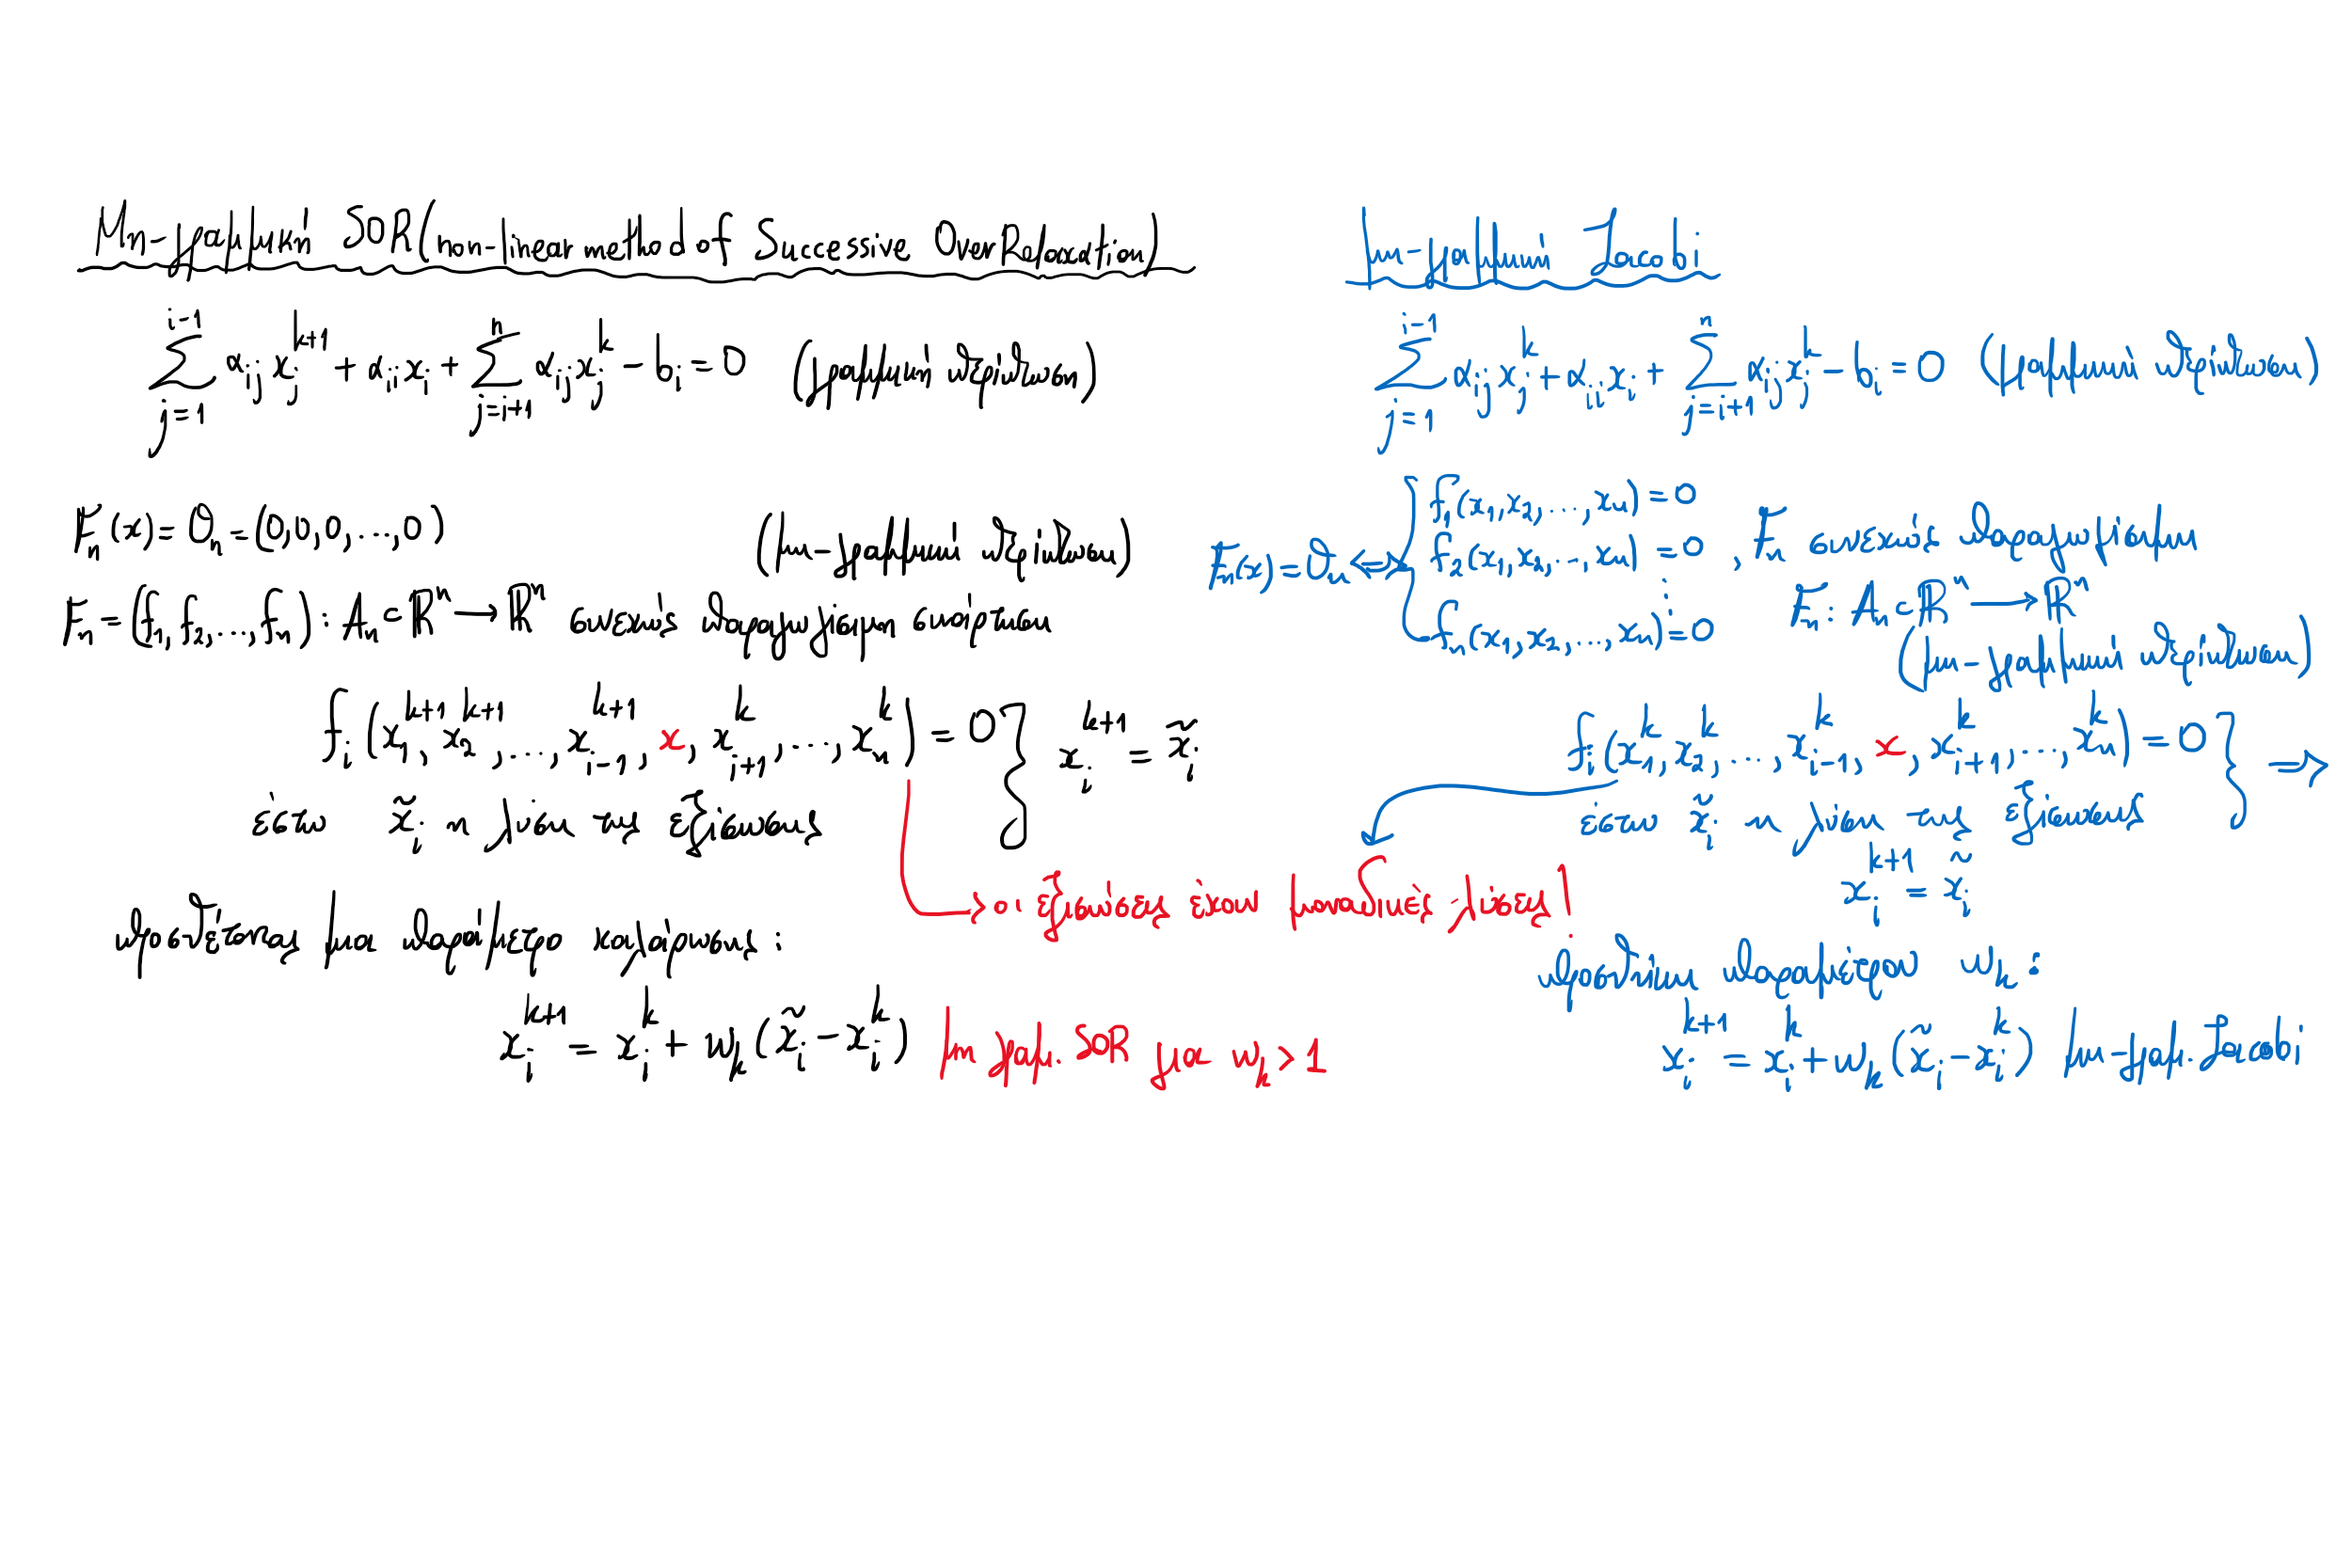 Μη-γραμμική SOR (non-linear method of Successive OverRelaxation)
∑_{j=1}^{i-1} α_{ij} x_j^{k+1} + α_{ii} x_i + ∑_{j=i+1}^{n} α_{ij} x_j^k - b_i = 0 (γραμμική περίπτωση)
F_n(x) = 0_n = (0,0,0,...,0)
(μη-γραμμική περίπτωση)
F_n = (f_1, f_2, ..., f_n) : A_n ⊂ ℝ^n → ℝ^n συνεχώς παραγωγίσιμη συνάρτηση
f_i (x_1^{k+1}, x_2^{k+1}, ..., x_{i-1}^{k+1}, x, x_{i+1}^k, ..., x_n^k) = 0 } x_i^{k+1} = x̃_i
έστω x̃_i η λύση της εξίσωσης
→ οι εξισώσεις έχουν μοναδικές λύσεις!
προσθέτοντας μια παράμετρο χαλάρωσης:
x_i^{k+1} = x_i^k + w_k (x̃_i - x_i^k) μη γραμ. SOR για w_k > 1
μη-γραμμική Jacobi
∑_{j=1}^{i-1} α_{ij} x_j^k + α_{ii} x_i + ∑_{j=i+1}^{n} α_{ij} x_j^k - b_i = 0 (γραμμική περίπτωση)
F_n(x) = 0_n ⟺ { f_1(x_1, x_2, ..., x_n) = 0
f_2(x_1, x_2, ..., x_n) = 0 , F_n συνεχώς παραγωγίσιμη
⋮ F_n : A_n ⊂ ℝ^n → ℝ^n
f_n(x_1, x_2, ..., x_n) = 0
(μη-γραμμική περίπτωση)
f_i (x_1^k, x_2^k, ..., x_{i-1}^k, x, x_{i+1}^k, ..., x_n^k) = 0 } ⇒
έστω x̃_i η λύση της εξίσωσης
x_i^{k+1} = x̃_i
προσθήκη παραμέτρου w_k :
x_i^{k+1} = x_i^k + w_k (x̃_i - x_i^k) μη-γραμ. Jacobi